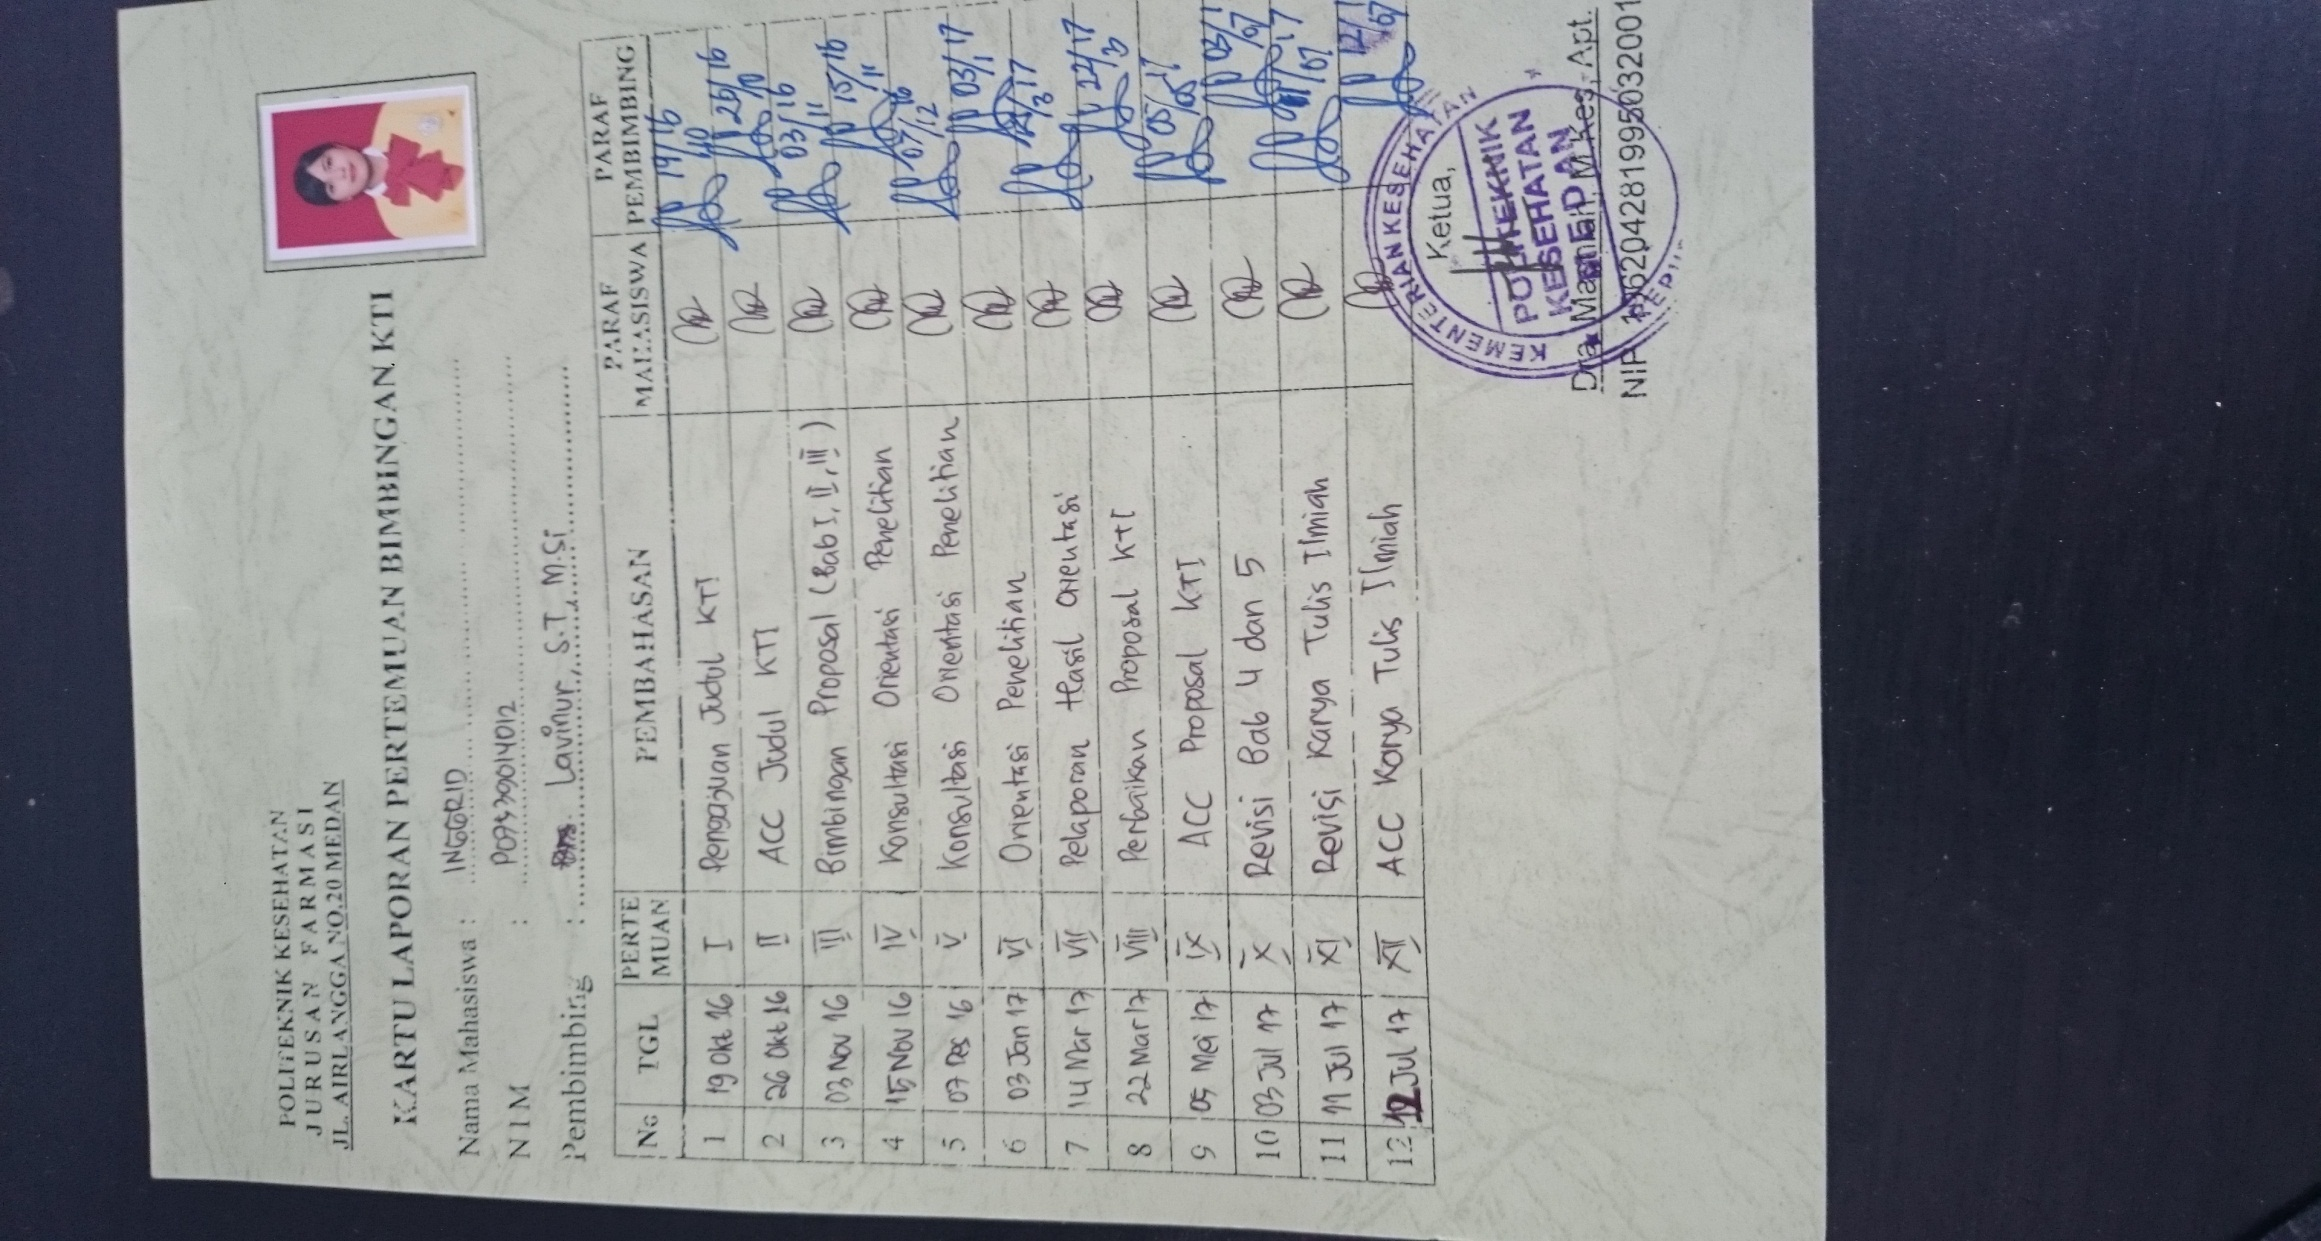 POLITEKNIK KESEHATAN
JURUSAN FARMASI
JL. AIRLANGGA NO.20 MEDAN
KARTU LAPORAN PERTEMUAN BIMBINGAN KTI
Nama Mahasiswa : INGGRID
NIM : P07539014012
Pembimbing : Lavinur, S.T, M.Si
No TGL PERTEMUAN PEMBAHASAN PARAF MAHASISWA PARAF PEMBIMBING
1 19 Okt 16 I Pengajuan Judul KTI 19/16 10
2 26 Okt 16 II ACC Judul KTI 26/16 10
3 03 Nov 16 III Bimbingan Proposal (Bab I, II, III) 03/16 11
4 15 Nov 16 IV Konsultasi Orientasi Penelitian 15/16 11
5 07 Des 16 V Konsultasi Orientasi Penelitian 07/16 12
6 03 Jan 17 VI Orientasi Penelitian 03/17 1
7 14 Mar 17 VII Pelaporan Hasil Orientasi 17 3
8 22 Mar 17 VIII Perbaikan Proposal KTI 22/17 3
9 05 Mei 17 IX ACC Proposal KTI 05/17 05
10 03 Jul 17 X Revisi Bab 4 dan 5 03/1 07
11 11 Jul 17 XI Revisi Karya Tulis Ilmiah 17 07
12 12 Jul 17 XII ACC Karya Tulis Ilmiah 12/1 07
Ketua,
KEMENTERIAN KESEHATAN
POLITEKNIK
KESEHATAN
MEDAN
Dra. Masniah, M.Kes, Apt.
NIP. 196204281995032001